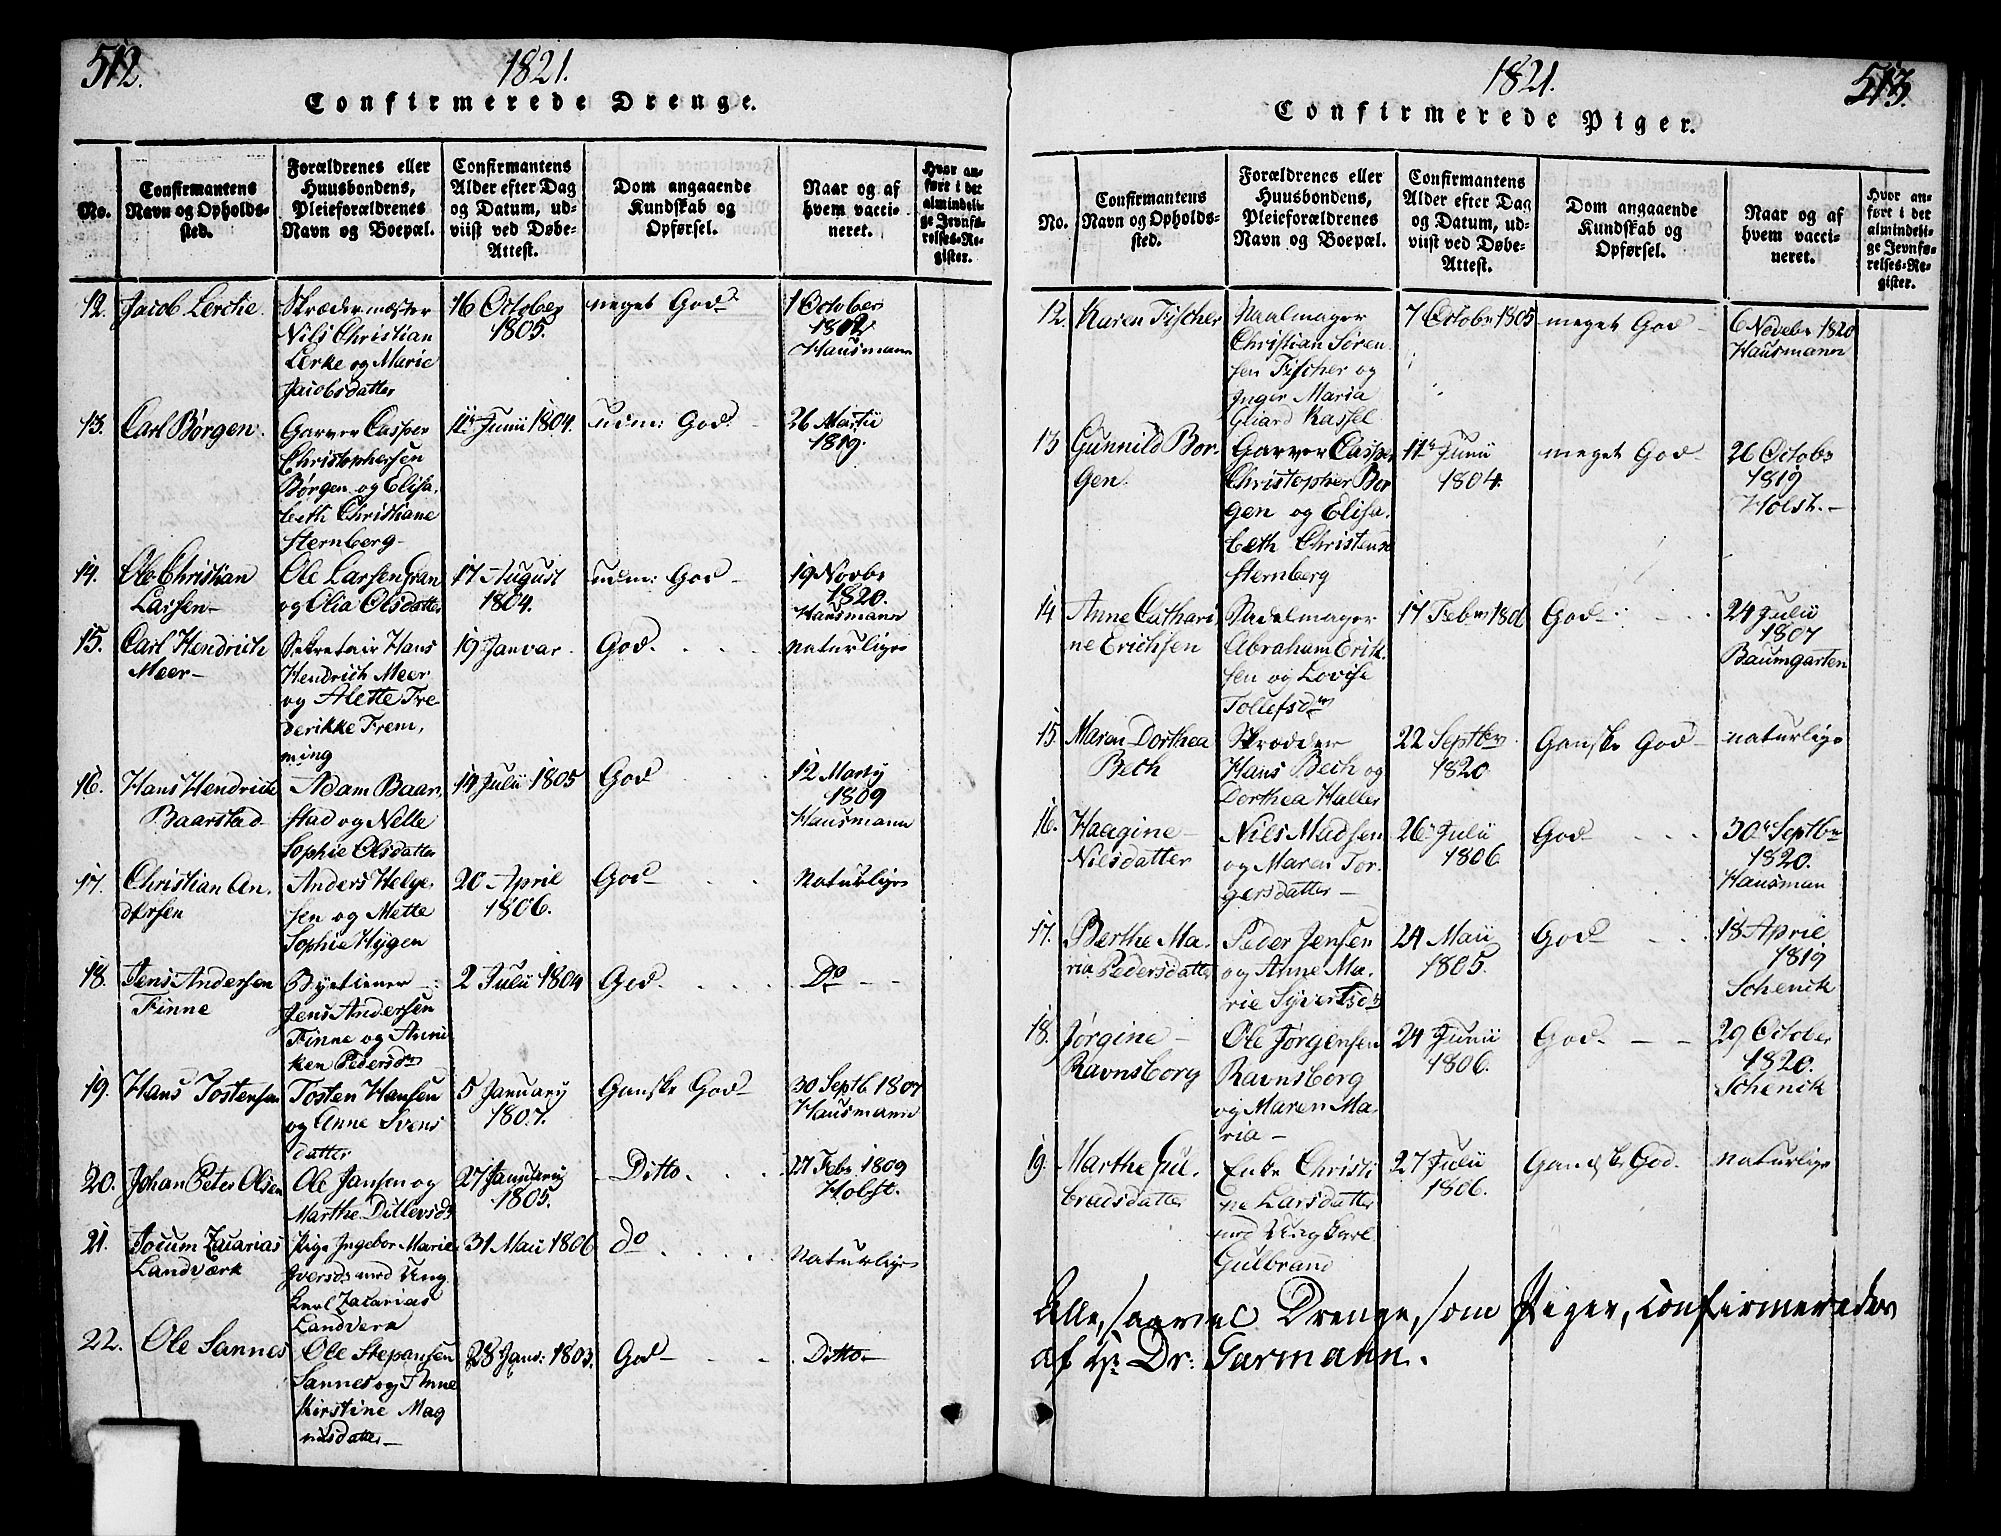 512.
1821.
Confirmerede Drenge.
No.
Confirmantens
Navn og Opholds-
sted.
Forældrenes eller
Huusbondens,
Pleieforældrenes
Navn og Boepæl.
Confirmantens
Alder efter Dag
og Datum, ud-
viist ved Døbe-
Attest.
Dom angaaende
Kundskab og
Opførsel.
Naar og af
hvem vacci-
neret.
Hvor an-
ført i det
almindeli-
ge Jevnfø-
relses-Re-
gister.
12.
Jacob Lerche.
Skrædermæster
Nils Christian
Lerke og Marie
Jacobsdatter
16 October
1805.
meget God
1 October
1802
Hausmann
13.
Carl Børgen.
Garver Casper
Christophersen
Børgen og Elisa,
beth Christiane
Sternberg
11 Junii 1804.
udm: God
26 Martii
1819.
14.
Ole Christian
Larsen
Ole Larsen Gran
og Olia Olsdatter
17 August
1804.
udm: God
19 Novbr
1820.
Hausmann
15.
Carl Hendrich
Meer
Sekretair Hans
Hendrich Meer
og Alette Fre-
derikke Frem,
ming
19 Janvar
God.
naturlige
16.
Hans Hendrich
Baarstad
Adam Baar,
stad og Nelle
Sophie Olsdatter
14 Julii 1805
God
12 Marty
1809
Hausmann
17.
Christian An,
dersen
Anders Helge,
sen og Mette
Sophie Hygen
20 April
1806.
God
Naturlige
18.
Jens Andersen
Finne
Bytiener
Jens Andersen
Finne og Anni
ken Pedersdr
2 Julii 1804
God.
Do
19.
Hans Tostensen
Tosten Hansen
og Anne Svens
datter
5 January
1807.
Ganske God
30 Septb. 1807
Hausmann
20.
Johan Peter Olsen
Ole Jansen og
Marthe Ditlevsdr
27 January
1805.
Ditto.
27 Febr 1809
Holst.
21.
Jocum Zacarias
Landværk
Pige Ingebor Marie
Iversdr med Ung
Karl Zacarias
Landverk
31 Maii 1806
do
Naturlige
22.
Ole Sannes
Ole Stepansen
Sannes og Anne
Kirstine Mag
nusdatter
28 Janv: 1803.
God
Ditto
1821.
513.
Confirmerede Piger.
No.
Confirmantens
Navn og Opholds-
sted.
Forældrenes eller
Huusbondens,
Pleieforældrenes
Navn og Boepæl.
Confirmantens
Alder efter Dag
og Datum, ud-
viist ved Døbe-
Attest.
Dom angaaende
Kundskab og
Opførsel.
Naar og af
hvem vacci-
neret.
Hvor an-
ført i det
almindeli-
ge Jevnfø-
relses-Re-
gister.
12.
Karen Fischer
Naalmager
Christian Søren
sen Fischer og
Inger Maria
Gliard Kassel
7 Octobr 1805
meget God
6 Novebr 1820
Hausmann
13
Gunnild Bor-
gen.
Garver Casper
Christopher Bor
gen og Elisa,
beth Christense
Sternberg
11 Junii
1804.
meget God
26 Octobr
1819
Holst.
14
Anne Cathari
ne Erichsen
Sadelmager
Abraham Erik
sen og Lovise
Tollefsdr
17 Febr 1806
God
24 Julii
1807
Baumgarten
15
Maren Dorthea
Bech
Skrædder
Hans Bech og
Dorthea Haller
22 Septbr
1820
Ganske God
naturlige
16.
Haagine
Nilsdatter
Nils Madsen
og Maren Tor
gersdatter
26 Julii
1806
God
30 Septbr
1820.
Hausman
17.
Berthe Ma,
ria Pedersdatter
Peder Jensen
og Anne Ma,
rie Syvertsdr
24 Maii
1805.
God
18 April
1819
Schenck
18.
Jørgine
Ravnsborg
Ole Jørgensen
Ravnsborg
og Maren Ma,
ria
24 Junii
1806.
God
29 October
1820.
Schenck
19.
Marthe Gul
brandsdatter
Enke Christi
ne Larsdatter
med Ung Karl
Gulbrand
27 Julii
1806.
Ganske God.
naturlige
Alle, saavel Drenge, som Piger, confirmerede
af Hr. Dr. Garmann.